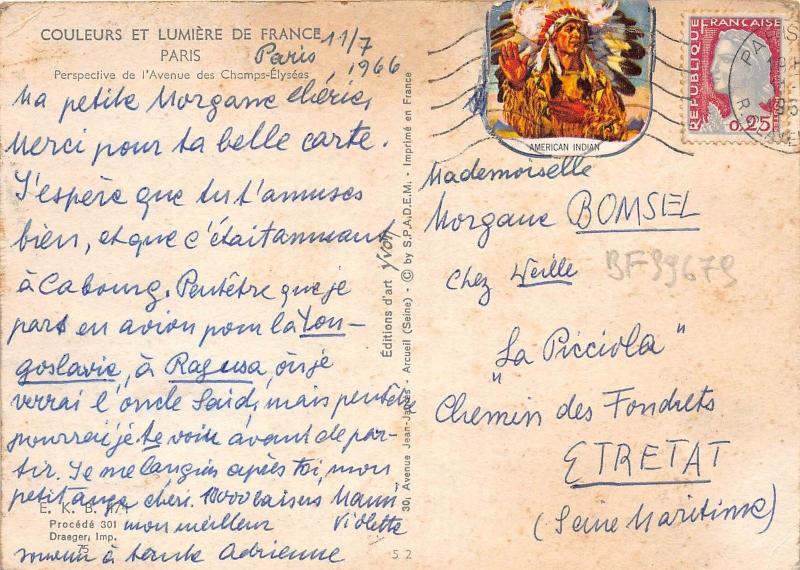 COULEURS ET LUMIÈRE DE FRANCE
PARIS
Perspective de l'Avenue des Champs-Élysées
Paris 11/7
1966
Ma petite Morgane chérie,
Merci pour ta belle carte.
J'espère que tu t'amuses
bien, et que c'était amusant
à Cabourg. Peutêtre que je
pars en avion pour la You-
goslavie, à Ragusa, où je
verrai l'oncle Saïd, mais peutêtre
pourrai je te voir avant de par-
tir. Je me languis après toi, mon
petit ange chéri. 10000 baisers Mami
Violette
mon meilleur
souvenir à tante Adrienne
E. K. B. 
Procédé 301
Draeger, Imp.
75
52
30, Avenue Jean-Jaurès - Arcueil (Seine) - © by S.P.A.D.E.M. - Imprimé en France
Éditions d'art yvon
AMERICAN INDIAN
REPUBLIQUE FRANÇAISE
0,25
PARIS
Mademoiselle
Morgane BOMSEL
chez Weille
BF99679
"La Picciola"
Chemin des Fondrets
ETRETAT
(Seine Maritime)